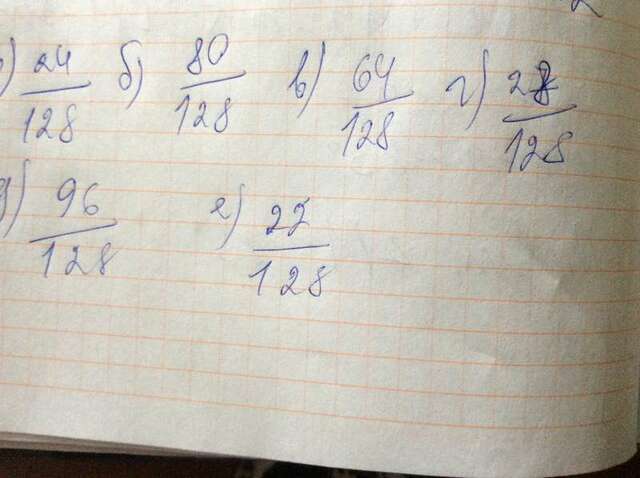 а) 24/128 б) 80/128 в) 64/128 г) 28/128
д) 96/128 е) 22/128